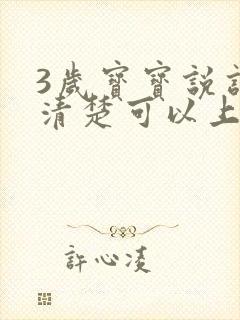 3歲寶寶說
清楚可以上
許心凌